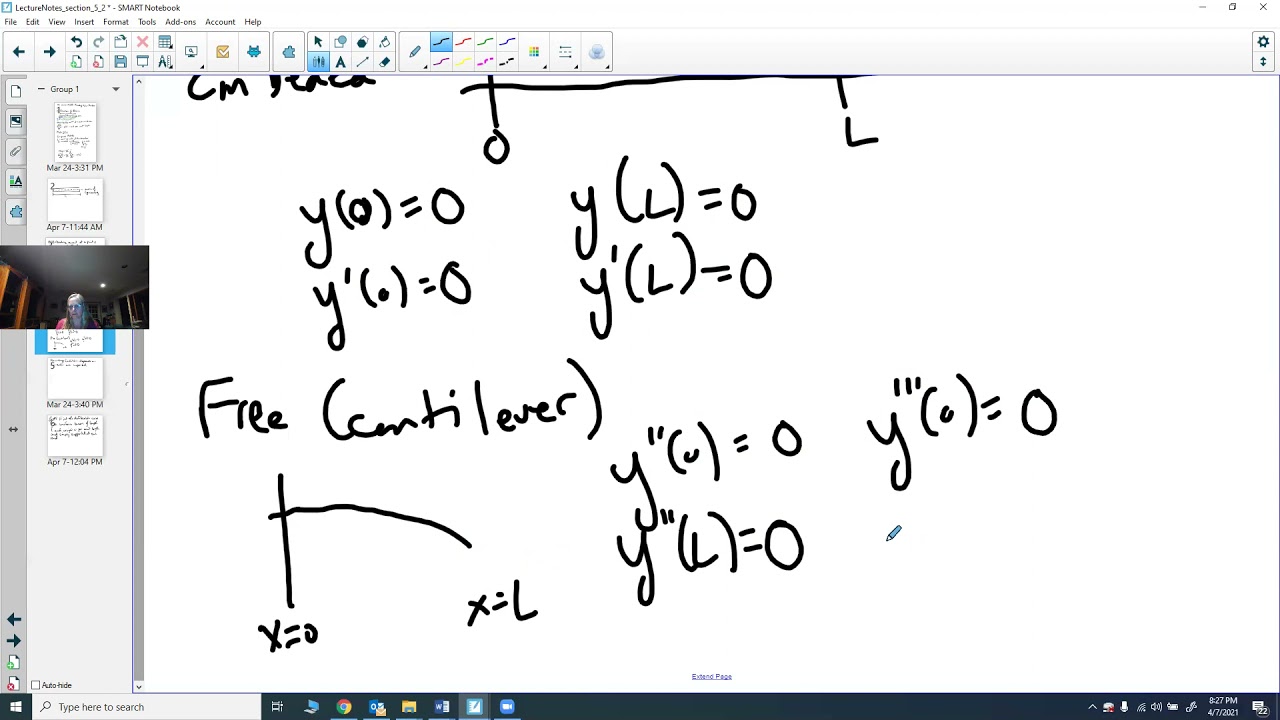 LectureNotes_section_5_2 * - SMART Notebook
File Edit View Insert Format Tools Add-ons Account Help
Group 1
Mar 24-3:31 PM
Apr 7-11:44 AM
Mar 24-3:40 PM
Apr 7-12:04 PM
Auto-hide
0 L
y(0)=0 y(L)=0
y'(0)=0 y'(L)=0
Free (cantilever)
y''(0)=0 y'''(0)=0
y''(L)=0
x=0 x=L
Extend Page
Type here to search
8:27 PM
4/7/2021
22